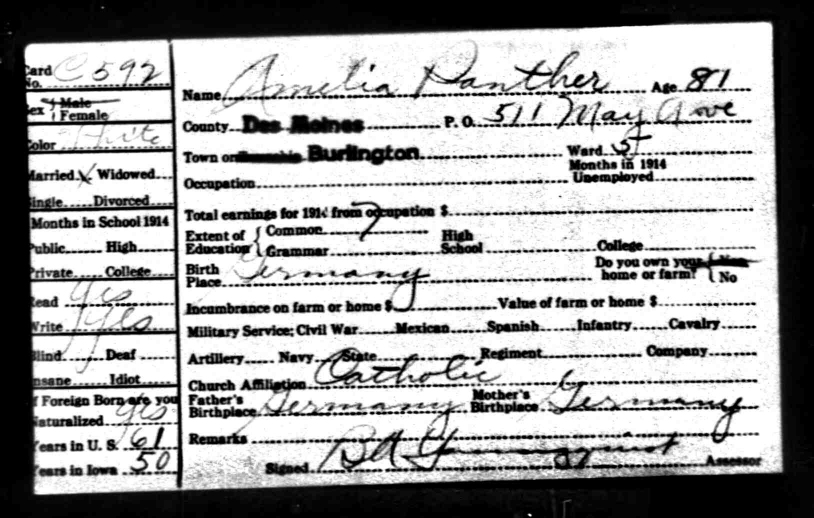 Card No. C592
Sex Male
Female
Color White
Married X Widowed
Single Divorced
Months in School 1914
Public High
Private College
Read Yes
Write Yes
Blind Deaf
Insane Idiot
If Foreign Born are you
Naturalized Yes
Years in U. S. 61
Years in Iowa 50
Name Amelia Panther Age 81
County Des Moines P. O. 511 May Ave
Town or Burlington Ward 5
Months in 1914
Occupation Unemployed
Total earnings for 1914 from occupation $
Extent of Education Common 7 High School College
Grammar
Birth Place Germany Do you own your home or farm? No
Incumbrance on farm or home $ Value of farm or home $
Military Service: Civil War Mexican Spanish Infantry Cavalry
Artillery Navy State Regiment Company
Church Affiliation Catholic
Father's Birthplace Germany Mother's Birthplace Germany
Remarks
Signed Assessor